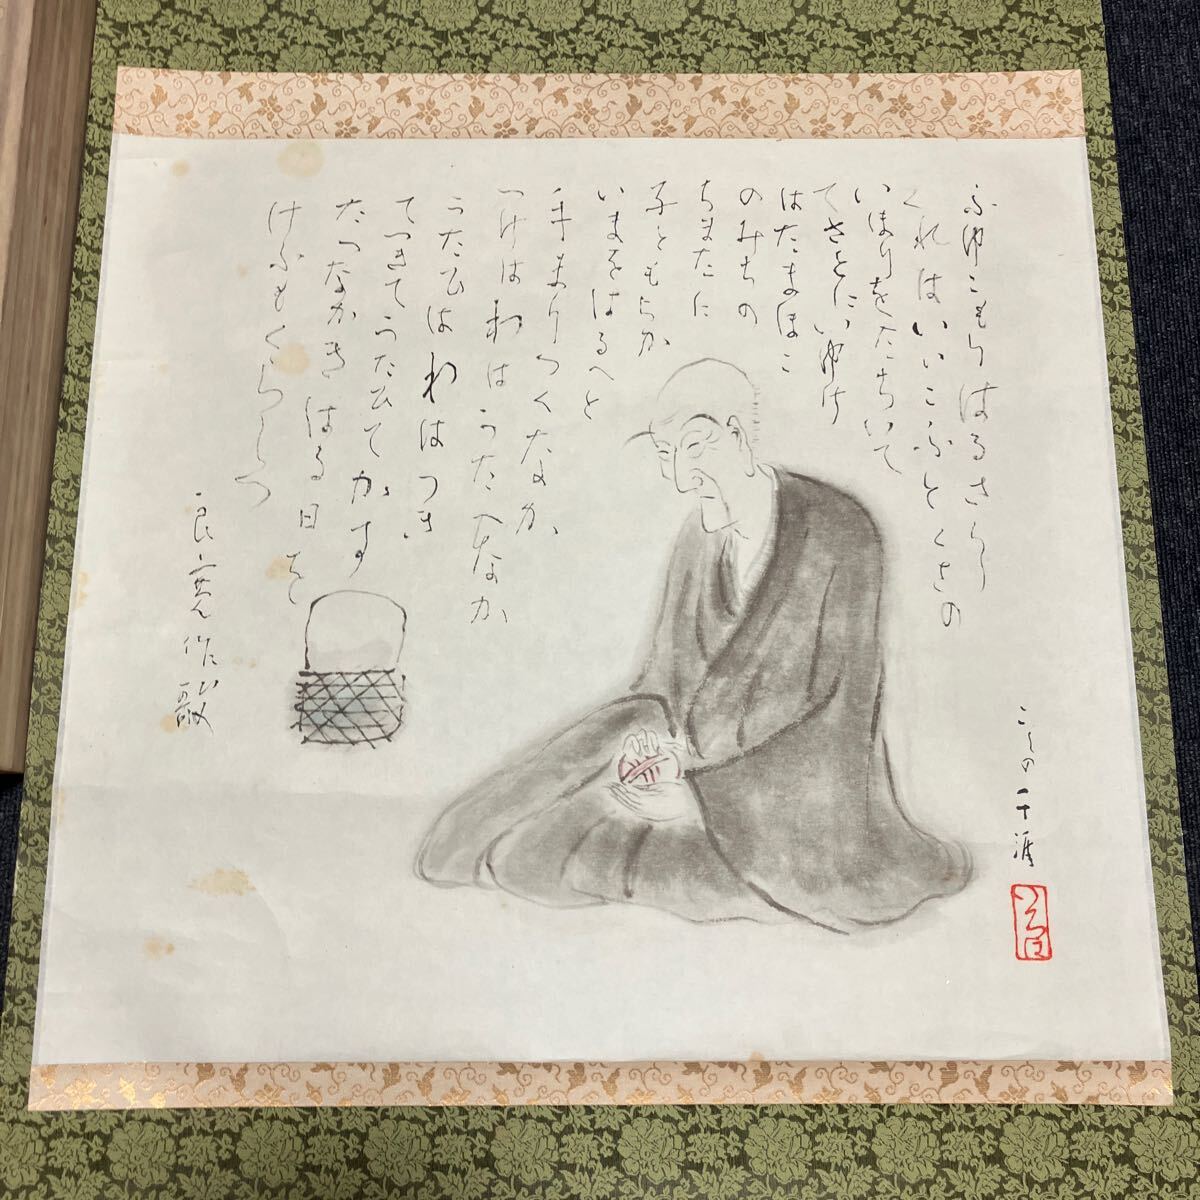 ふゆこもりはるさり
くれはいいこふとくさの
いほりをたちいて
てさとにいゆけ
はたまほこ
のみちの
ちまたに
子ともらか
いまをはるへと
手まりつくなか
つけはわはうたひなか
うたひはわはつき
てつきてうたひてかす
たつなかきはる日を
けふもくらしつ
良寛作歌